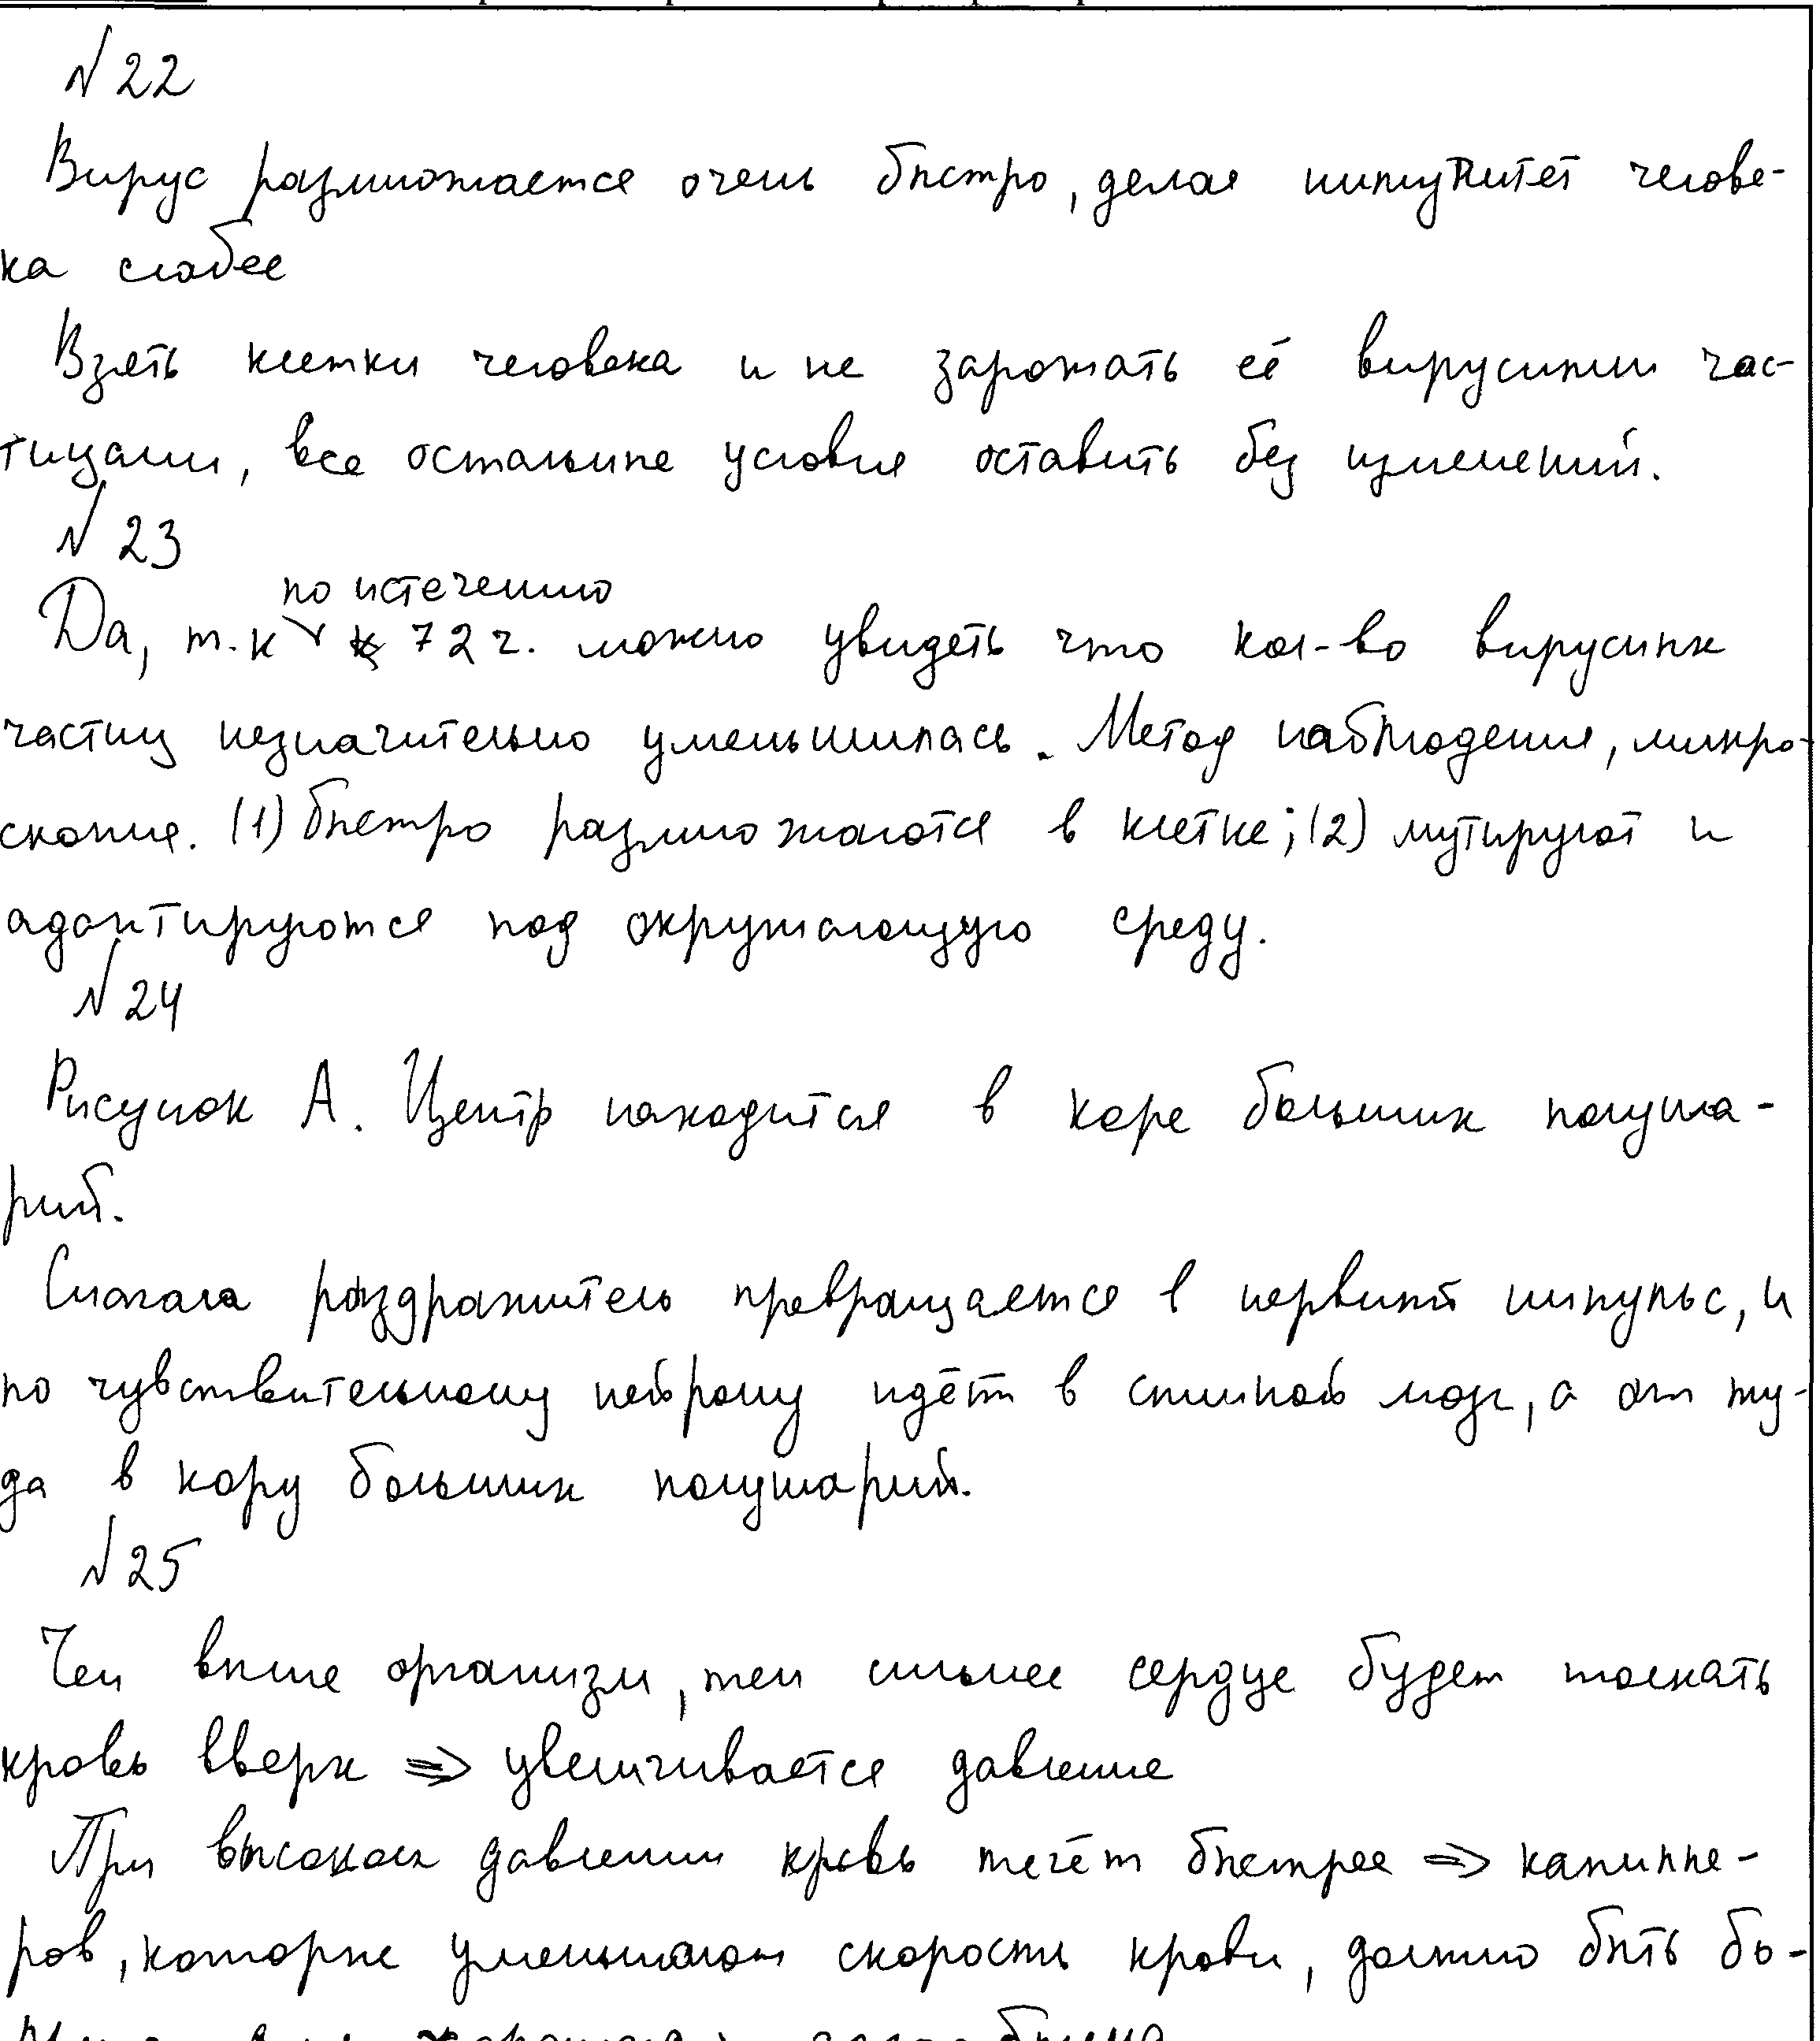 № 22
Вирус размножается очень быстро, делая иммунитет челове-
ка слабее
Взять клетки человека и не заражать её вирусными час-
тицами, все остальные условия оставить без изменений.
№ 23
по истечению
Да, т.к 72 ч. можно увидеть что кол-во вирусных
частиц незначительно уменьшилась. Метод наблюдения, микро-
скопия. (1) быстро размножаются в клетке; (2) мутируют и
адаптируются под окружающую среду.
№ 24
Рисунок А. Центр находится в коре больших полуша-
рий.
Сначала раздражитель превращается в нервный импульс, и
по чувствительному нейрону идёт в спинной мозг, а от ту-
да в кору больших полушарий.
№ 25
Чем выше организм, тем сильнее сердце будет толкать
кровь вверх => увеличивается давление
При высоком давлении кровь течёт быстрее => капилле-
ров, которые уменьшают скорость крови, должно быть бо-